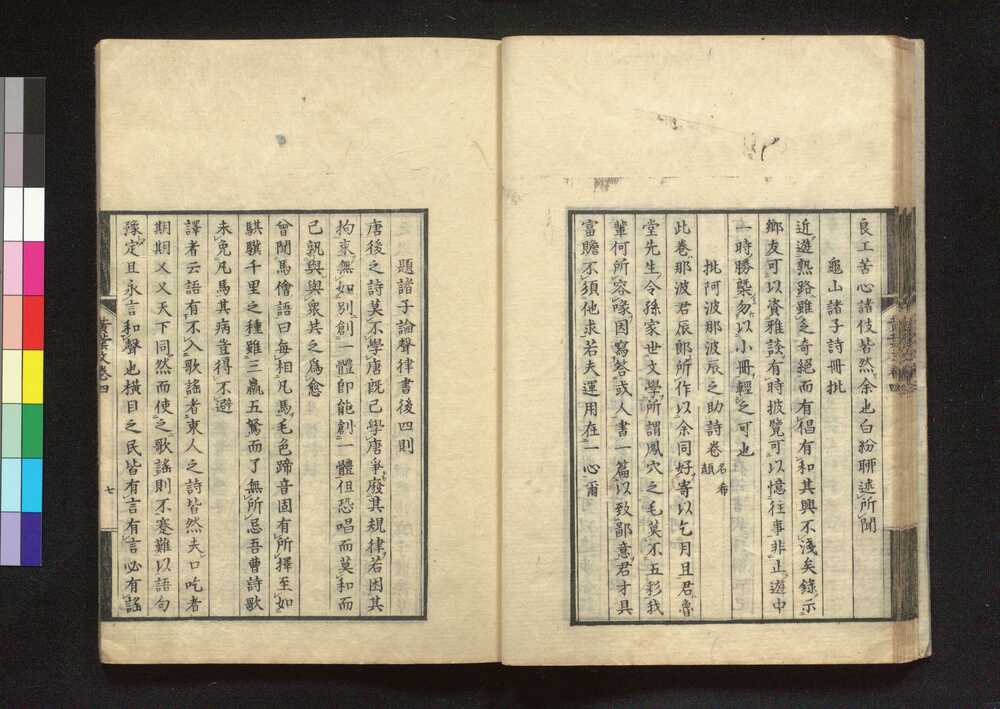 良工苦心諸伎皆然余也白紛聊述所聞
龜山諸子詩冊批
近遊熟路雖乏奇絕而有倡有和其興不淺矣錄示
鄉友可以資雅談有時披覽可以憶往事非止遊中
一時勝槩勿以小冊輕之可也
批阿波那波辰之助詩卷 名希顏
此卷那波君辰郎所作以余同好寄以乞月旦君魯
堂先生令孫家世文學所謂鳳穴之毛莫不五彩我
輩何所容喙因寫答或人書一篇以致鄙意君才具
富贍不須他求若夫運用在一心爾
題諸子論聲律書後四則
唐後之詩莫不學唐既已學唐爭廢其規律若因其
拘束無如別創一體即能創一體但恐唱而莫和而
已孰與與衆共之爲愈
曾聞馬儈語曰每相凡馬毛色蹄音固有所擇至如
騏驥千里之種雖三羸五駑而了無所忌吾曹詩歌
未免凡馬其病豈得不避
譯者云語有不入歌謠者東人之詩皆然夫口吃者
期期乂乂天下同然而使之歌謠則不蹇難以語句
豫定且永言和聲也橫目之民皆有言有言必有謠
黃葉文卷四
七